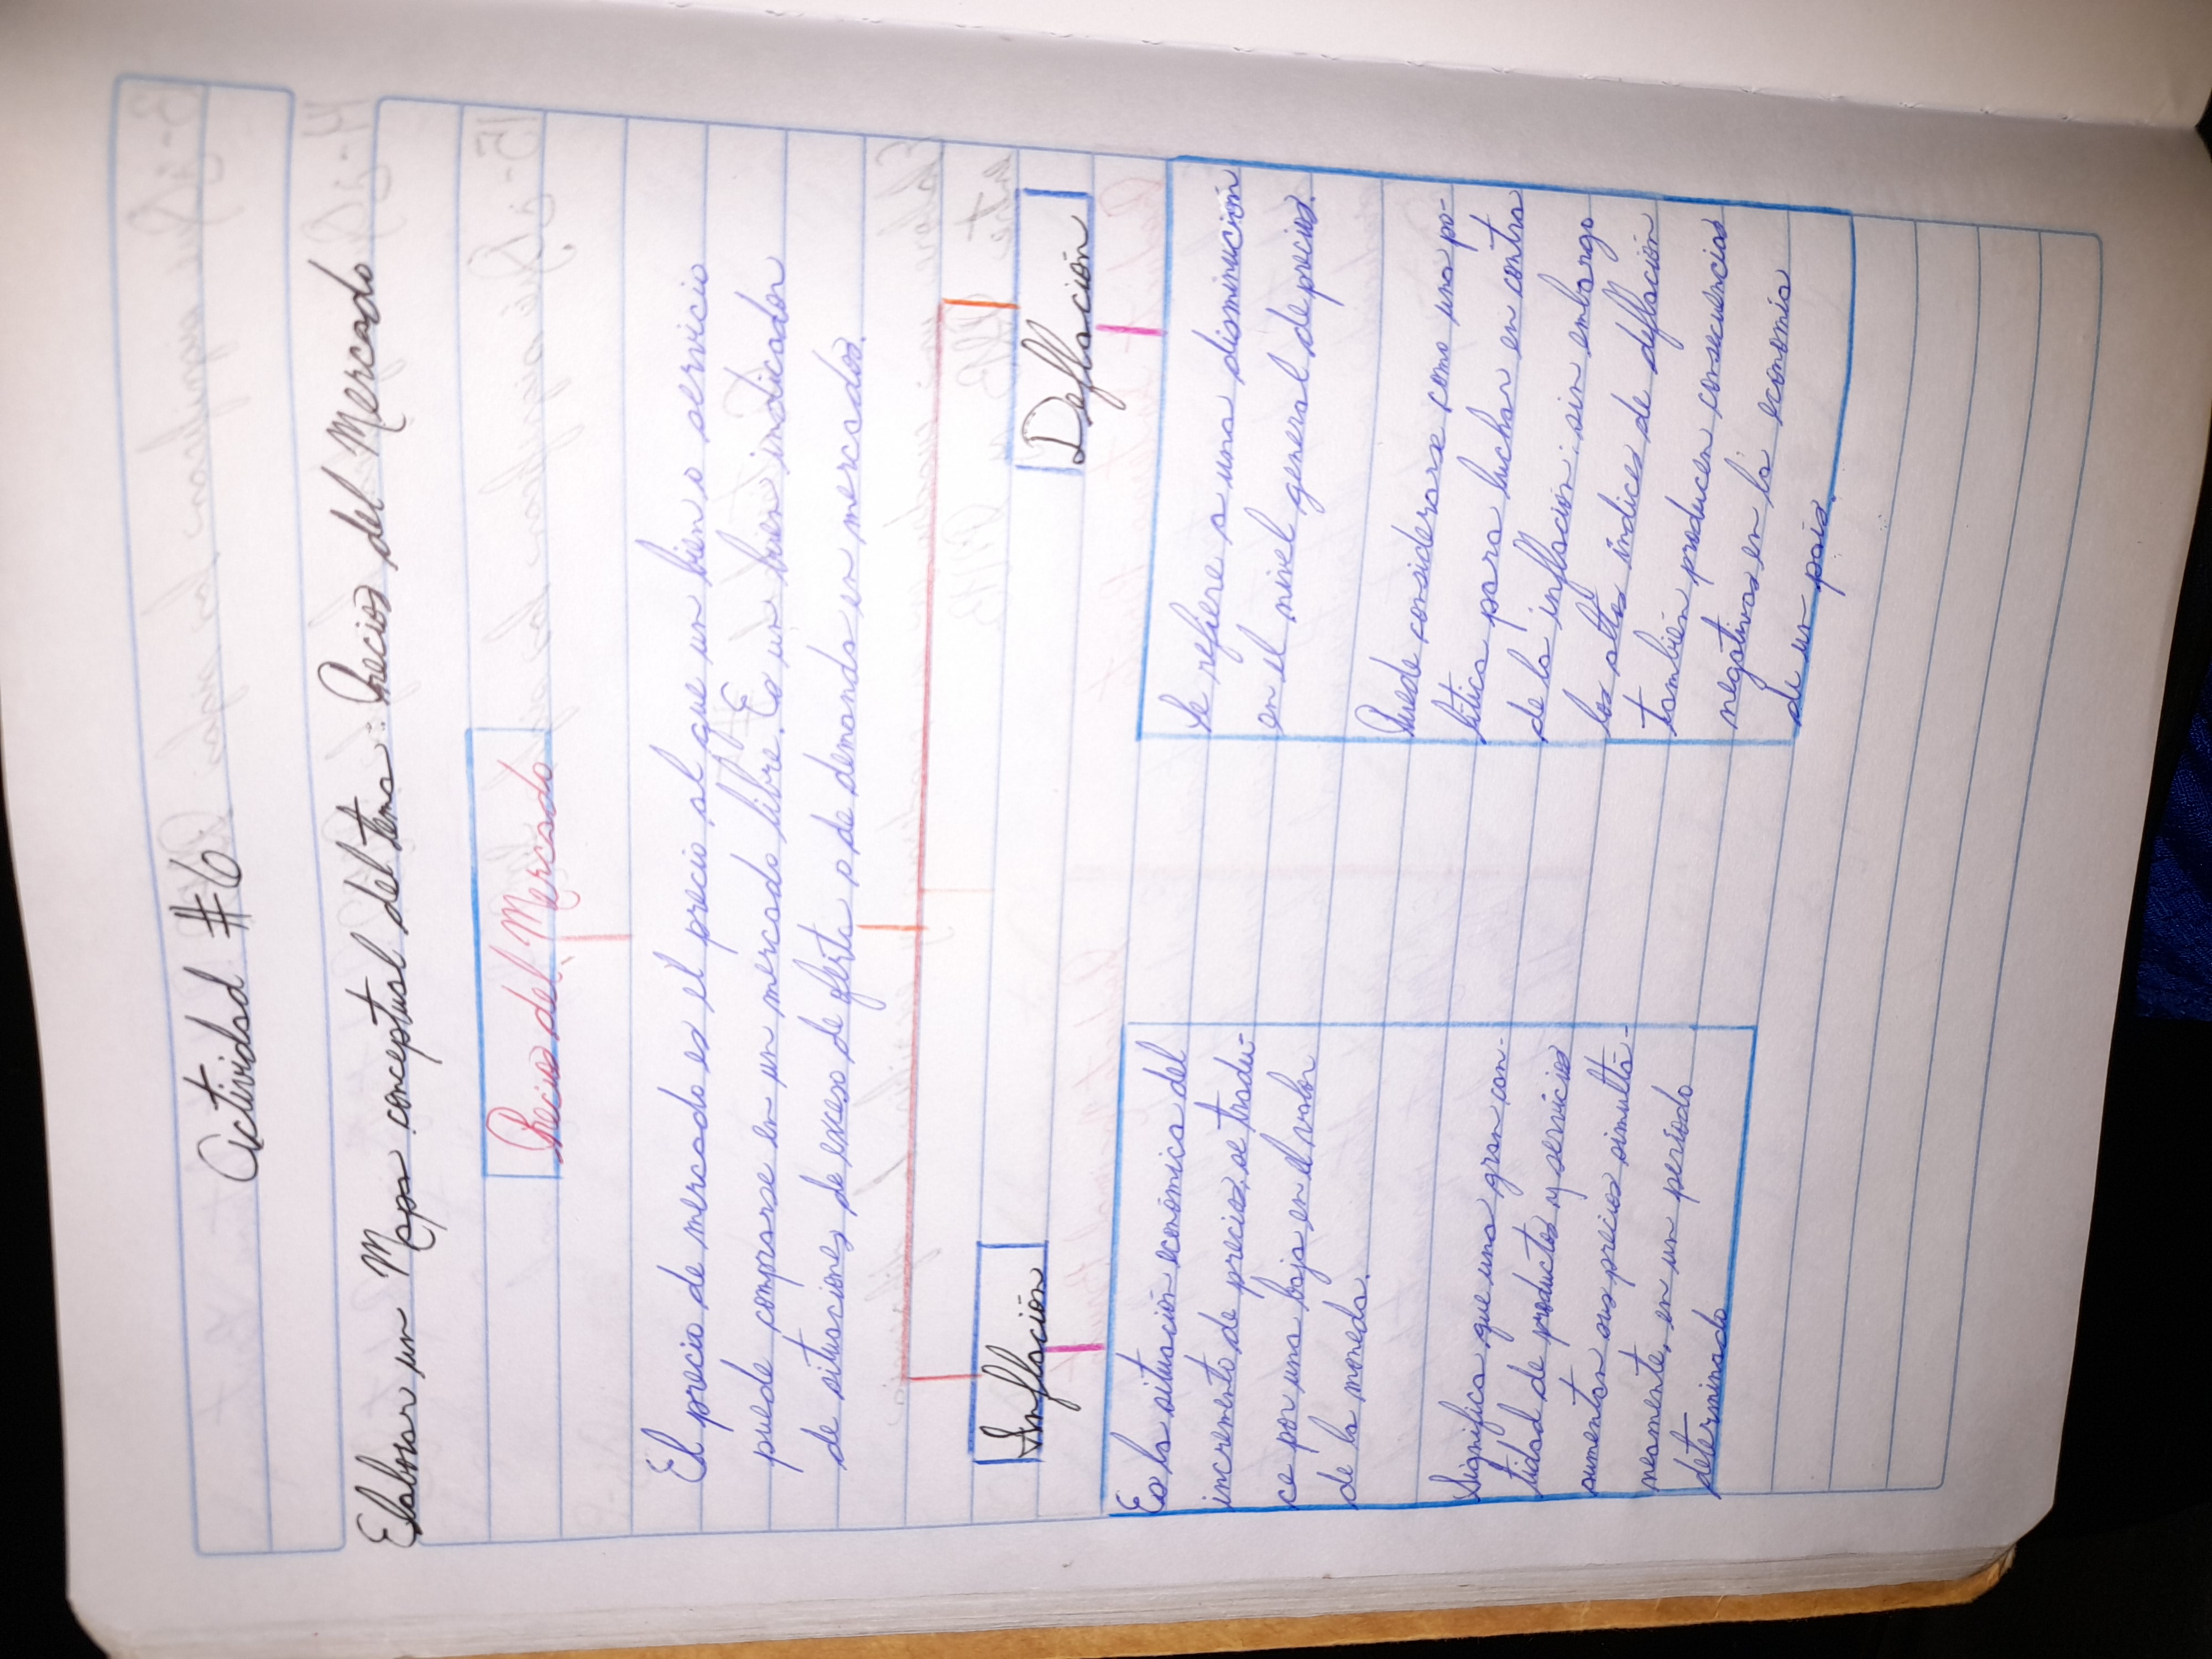 Actividad #6
Elaborar un Mapa conceptual del tema: Precios del Mercado
Precios del Mercado
El precio de mercado es el precio al que un bien o servicio
puede comprarse en un mercado libre. Es un buen indicador
de situaciones de exceso de oferta o de demanda en mercados.
Inflación
Es la situación económica del
incremento de precios, se tradu-
ce por una baja en el valor
de la moneda.
Significa que una gran can-
tidad de productos y servicios
aumentan sus precios simultá-
neamente, en un período
determinado
Deflación
Se refiere a una disminución
en el nivel general de precios.
Puede considerarse como una po-
lítica para luchar en contra
de la inflación; sin embargo
los altos índices de deflación
también producen consecuencias
negativas en la economía
de un país.